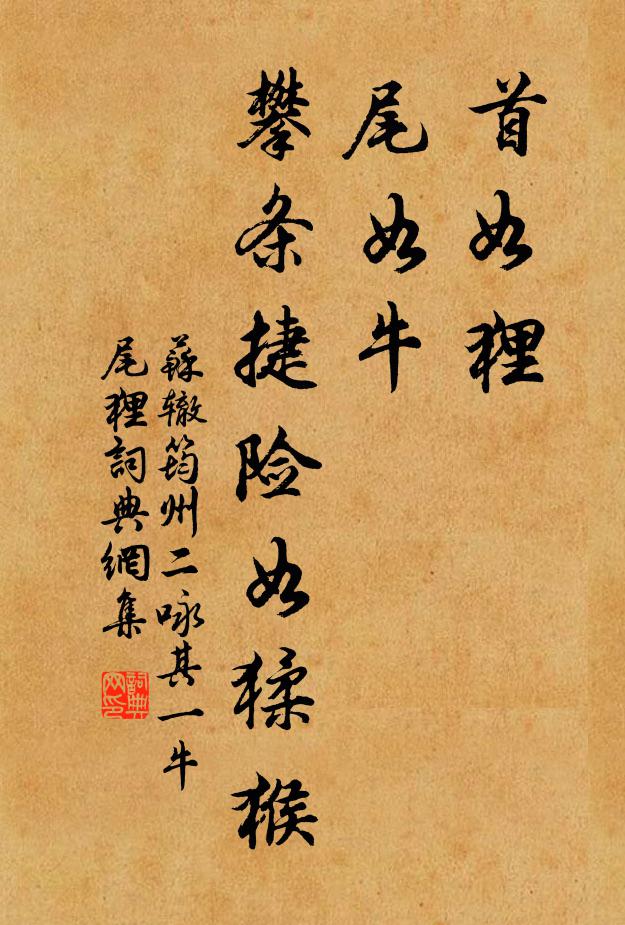 首如狸
尾如牛
攀条捷险如猱猴
蘇辙筠州二咏其一牛
尾狸詞典網集
詞典网印